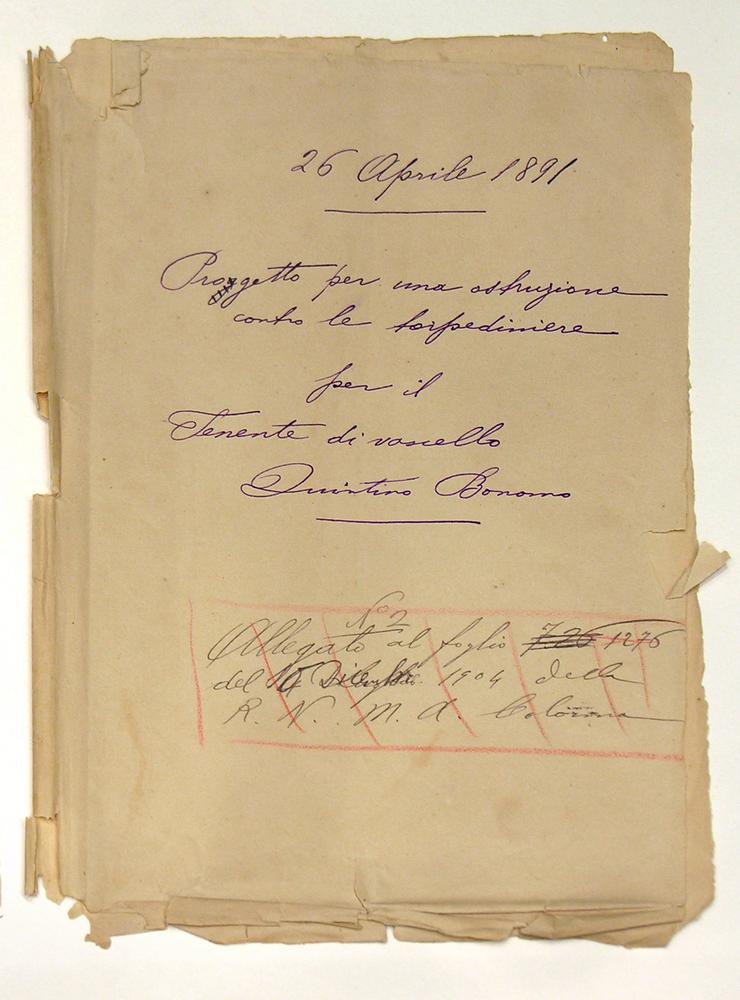 26 Aprile 1891
Progetto per una ostruzione
contro le torpediniere
per il
Tenente di vascello
Quintino Bonomo
N° 2
Allegato al foglio 726 1276
del 1904 della
R. N. M. A. Colonna